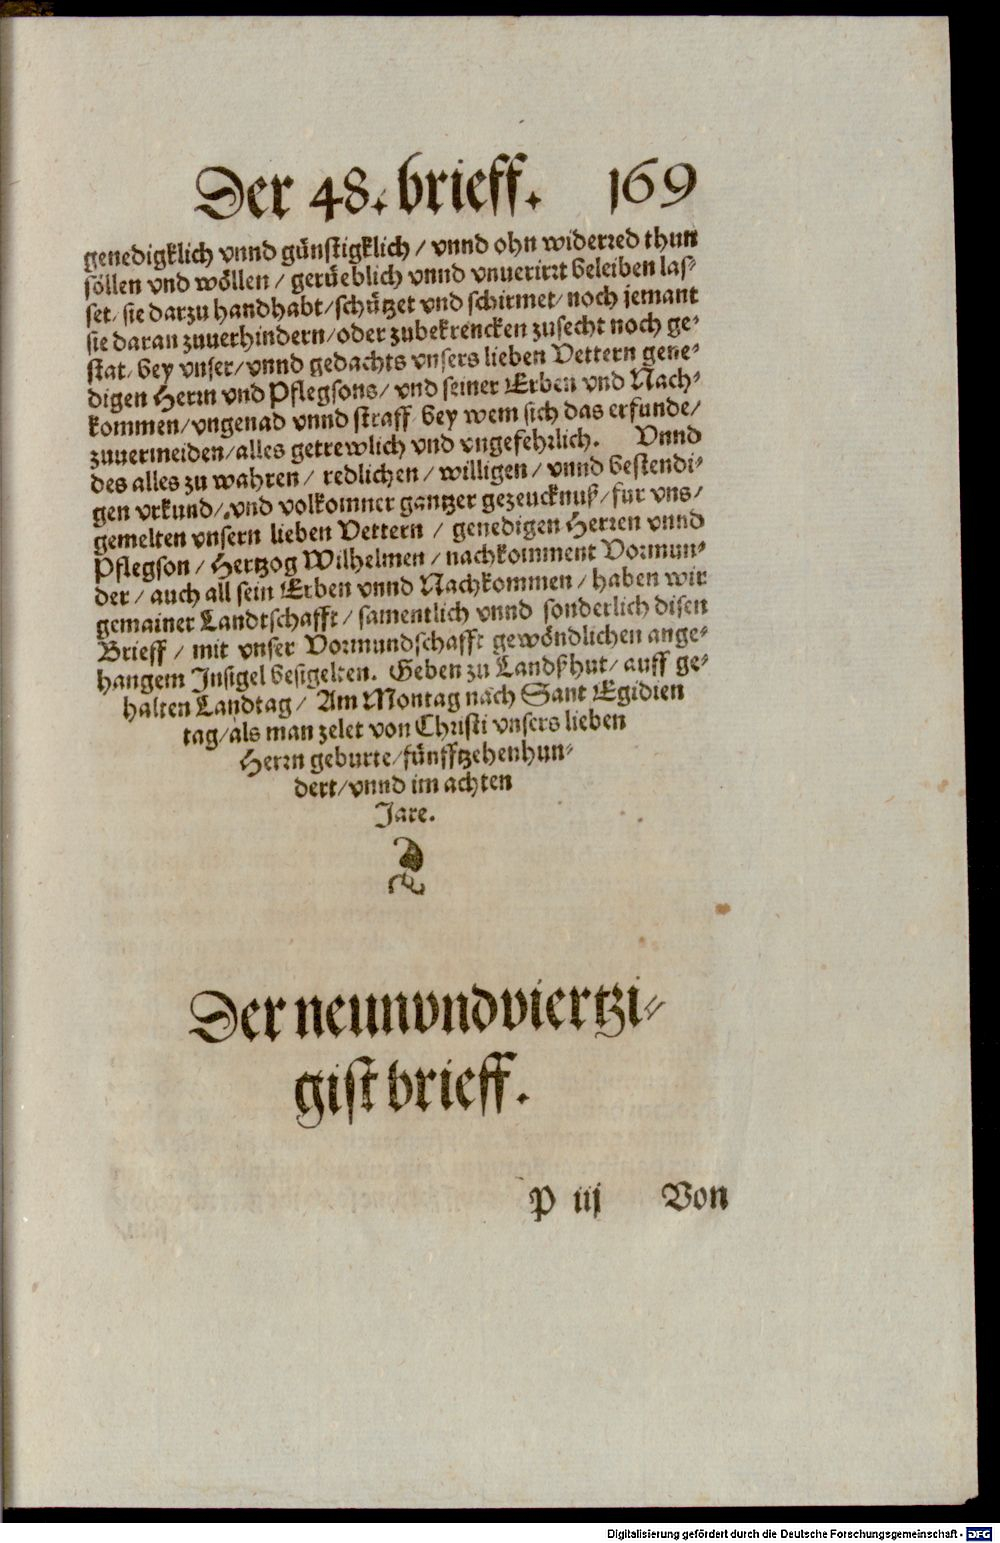 Der 48. brieff. 169
genedigklich vnnd günstigklich / vnnd ohn widerred thun
söllen vnd wöllen / gerüeblich vnnd vnuerirrt beleiben las-
set / sie darzu handhabt / schützet vnd schirmet / noch jemant
sie daran zuuerhindern / oder zubekrencken zusecht noch ge-
stat / bey vnser / vnnd gedachts vnsers lieben Vettern gene-
digen Herrn vnd Pflegsons / vnd seiner Erben vnd Nach-
kommen / vngenad vnnd straff bey wem sich das erfunde /
zuuermeiden / alles getrewlich vnd vngefehrlich. Vnnd
des alles zu wahren / redlichen / willigen / vnnd bestendi-
gen vrkund / vnd volkomner gantzer gezeucknuß / fur vns /
gemelten vnsern lieben Vettern / genedigen Herren vnnd
Pflegson / Hertzog Wilhelmen / nachkomment Vormun-
der / auch all sein Erben vnnd Nachkommen / haben wir
gemainer Landtschafft / samentlich vnnd sonderlich disen
Brieff / mit vnser Vormundschafft gewöndlichen ange-
hangem Insigel besigelten. Geben zu Landßhut / auff ge-
halten Landtag / Am Montag nach Sant Egidien
tag / als man zelet von Christi vnsers lieben
Herrn geburte / fünfftzehenhun-
dert / vnnd im achten
Jare.
Der neunvndviertzi-
gist brieff.
P iij Von
Digitalisierung gefördert durch die Deutsche Forschungsgemeinschaft - DFG